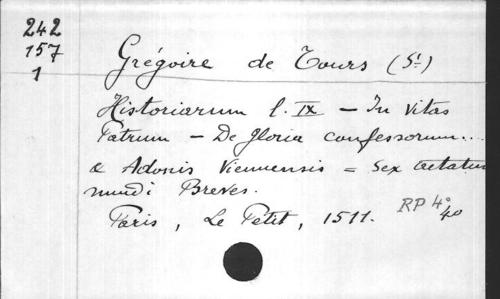 242
157
1
Grégoire de Tours (St)
Historiarum l. IX – In Vitas
Patrum – De gloria confessorum...
& Adonis Viennensis = Sex aetatum
mundi Breves.
Paris, Le Petit, 1511. RP 4° 40